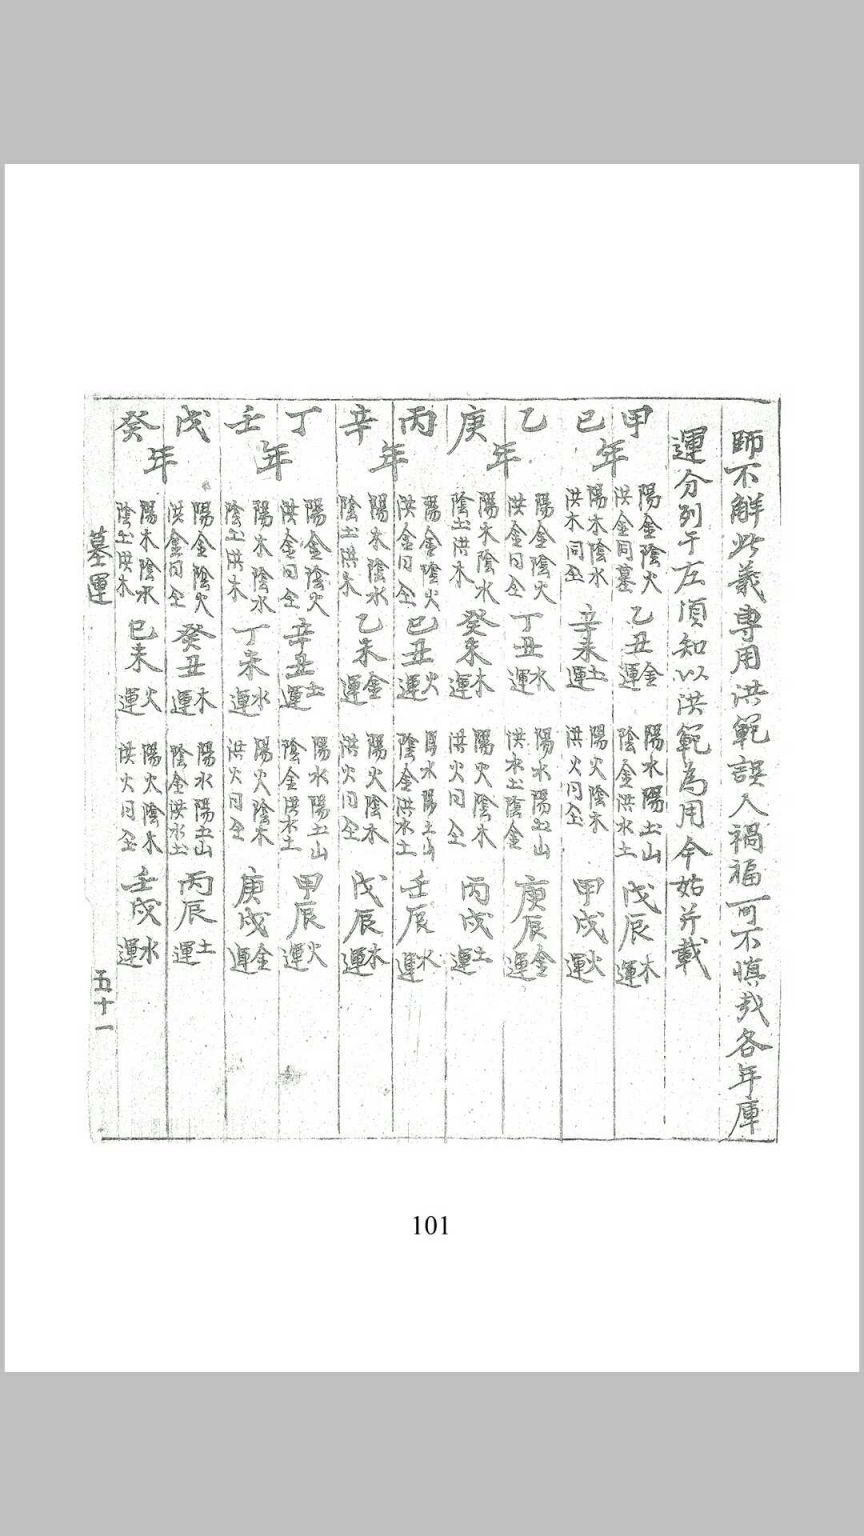 師不解此義專用洪範誤入禍福可不慎哉各年庫
運分列于左須知以洪範為用今姑并載
甲己年
陽金陰火
洪金同墓
乙丑金運
陽水陽土山
陰金洪水土
戊辰木運
陽木陰水
洪木同全
辛未土運
陽火陰木
洪火同全
甲戌火運
乙庚年
陽金陰火
洪金同全
丁丑水運
陽水陽土山
洪水土陰金
庚辰金運
陽木陰水
陰土洪木
癸未木運
陽火陰木
洪火同全
丙戌土運
丙辛年
陽金陰火
洪金同全
己丑火運
陽水陽土山
陰金洪水土
壬辰水運
陽木陰水
陰土洪木
乙未金運
陽火陰木
洪火同全
戊辰木運
丁壬年
陽金陰火
洪金同全
辛丑土運
陽水陽土山
陰金洪水土
甲辰火運
陽木陰水
陰土洪木
丁未水運
陽火陰木
洪火同全
庚戌金運
戊癸年
陽金陰火
洪金同全
癸丑木運
陽水陽土山
陰金洪水土
丙辰土運
陽木陰水
陰土洪木
己未火運
陽火陰木
洪火同全
壬戌水運
墓運
五十一
101